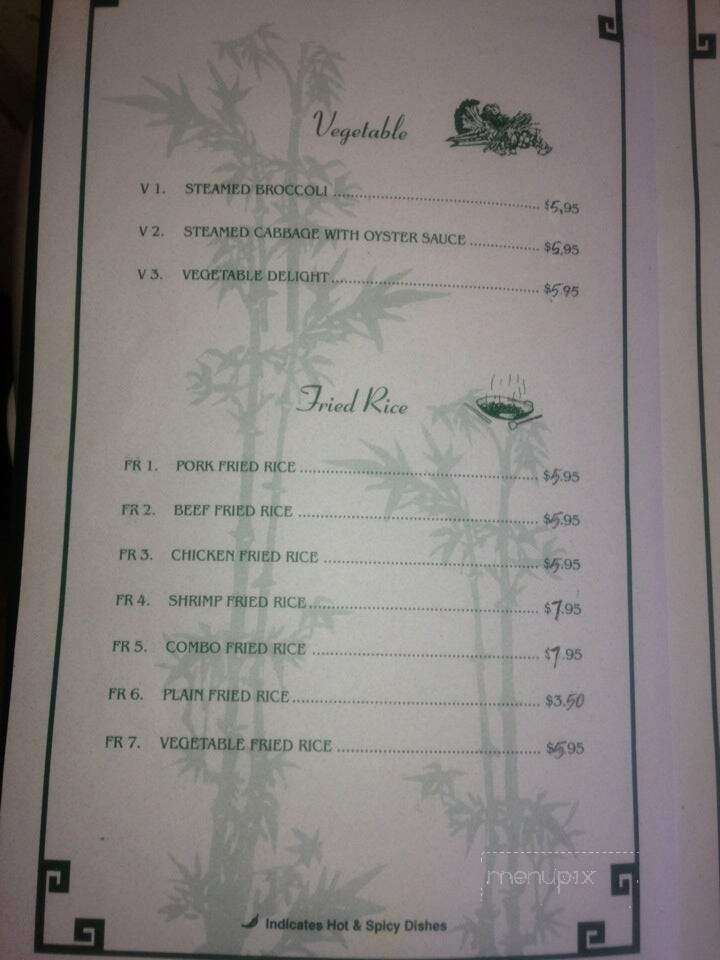 Vegetable
V 1. STEAMED BROCCOLI ........ $5,95
V 2. STEAMED CABBAGE WITH OYSTER SAUCE ........ $6,95
V 3. VEGETABLE DELIGHT ........ $5.95
Fried Rice
FR 1. PORK FRIED RICE ........ $5.95
FR 2. BEEF FRIED RICE ........ $5.95
FR 3. CHICKEN FRIED RICE ........ $5.95
FR 4. SHRIMP FRIED RICE ........ $7.95
FR 5. COMBO FRIED RICE ........ $7.95
FR 6. PLAIN FRIED RICE ........ $3.50
FR 7. VEGETABLE FRIED RICE ........ $5.95
menupix
Indicates Hot & Spicy Dishes